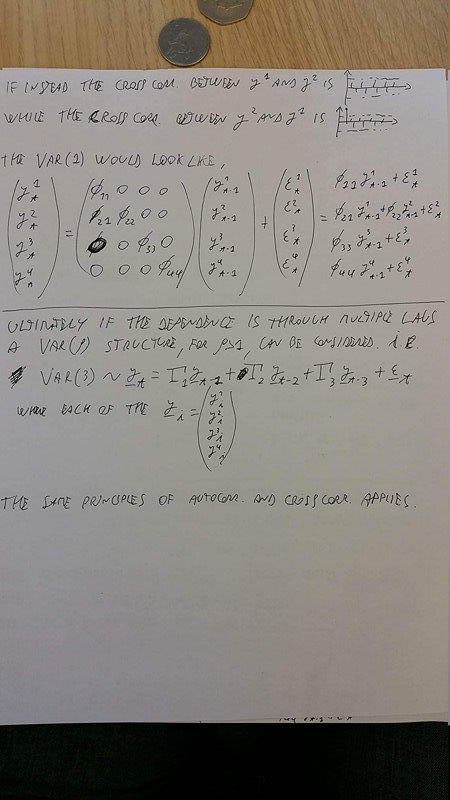 IF INSTEAD THE CROSS CORR. BETWEEN y¹ AND y² IS
WHILE THE CROSS CORR. BETWEEN y² AND y¹ IS
THE VAR(1) WOULD LOOK LIKE,
(y¹ₜ) = (φ₁₁ 0 0 0) (y¹ₜ₋₁) + (ε¹ₜ) = φ₁₁ y¹ₜ₋₁ + ε¹ₜ
(y²ₜ) (φ₂₁ φ₂₂ 0 0) (y²ₜ₋₁) (ε²ₜ) φ₂₁ y¹ₜ₋₁ + φ₂₂ y²ₜ₋₁ + ε²ₜ
(y³ₜ) (0 0 φ₃₃ 0) (y³ₜ₋₁) (ε³ₜ) φ₃₃ y³ₜ₋₁ + ε³ₜ
(y⁴ₜ) (0 0 0 φ₄₄) (y⁴ₜ₋₁) (ε⁴ₜ) φ₄₄ y⁴ₜ₋₁ + ε⁴ₜ
ULTIMATELY IF THE DEPENDENCE IS THROUGH MULTIPLE LAGS
A VAR(p) STRUCTURE, FOR p>1, CAN BE CONSIDERED. i.e.
VAR(3) ~ yₜ = Γ₁yₜ₋₁ + Γ₂yₜ₋₂ + Γ₃yₜ₋₃ + εₜ
WHERE EACH OF THE yᵢ = (y¹ᵢ
y²ᵢ
y³ᵢ
y⁴ᵢ)
THE SAME PRINCIPLES OF AUTOCORR. AND CROSSCORR. APPLIES.